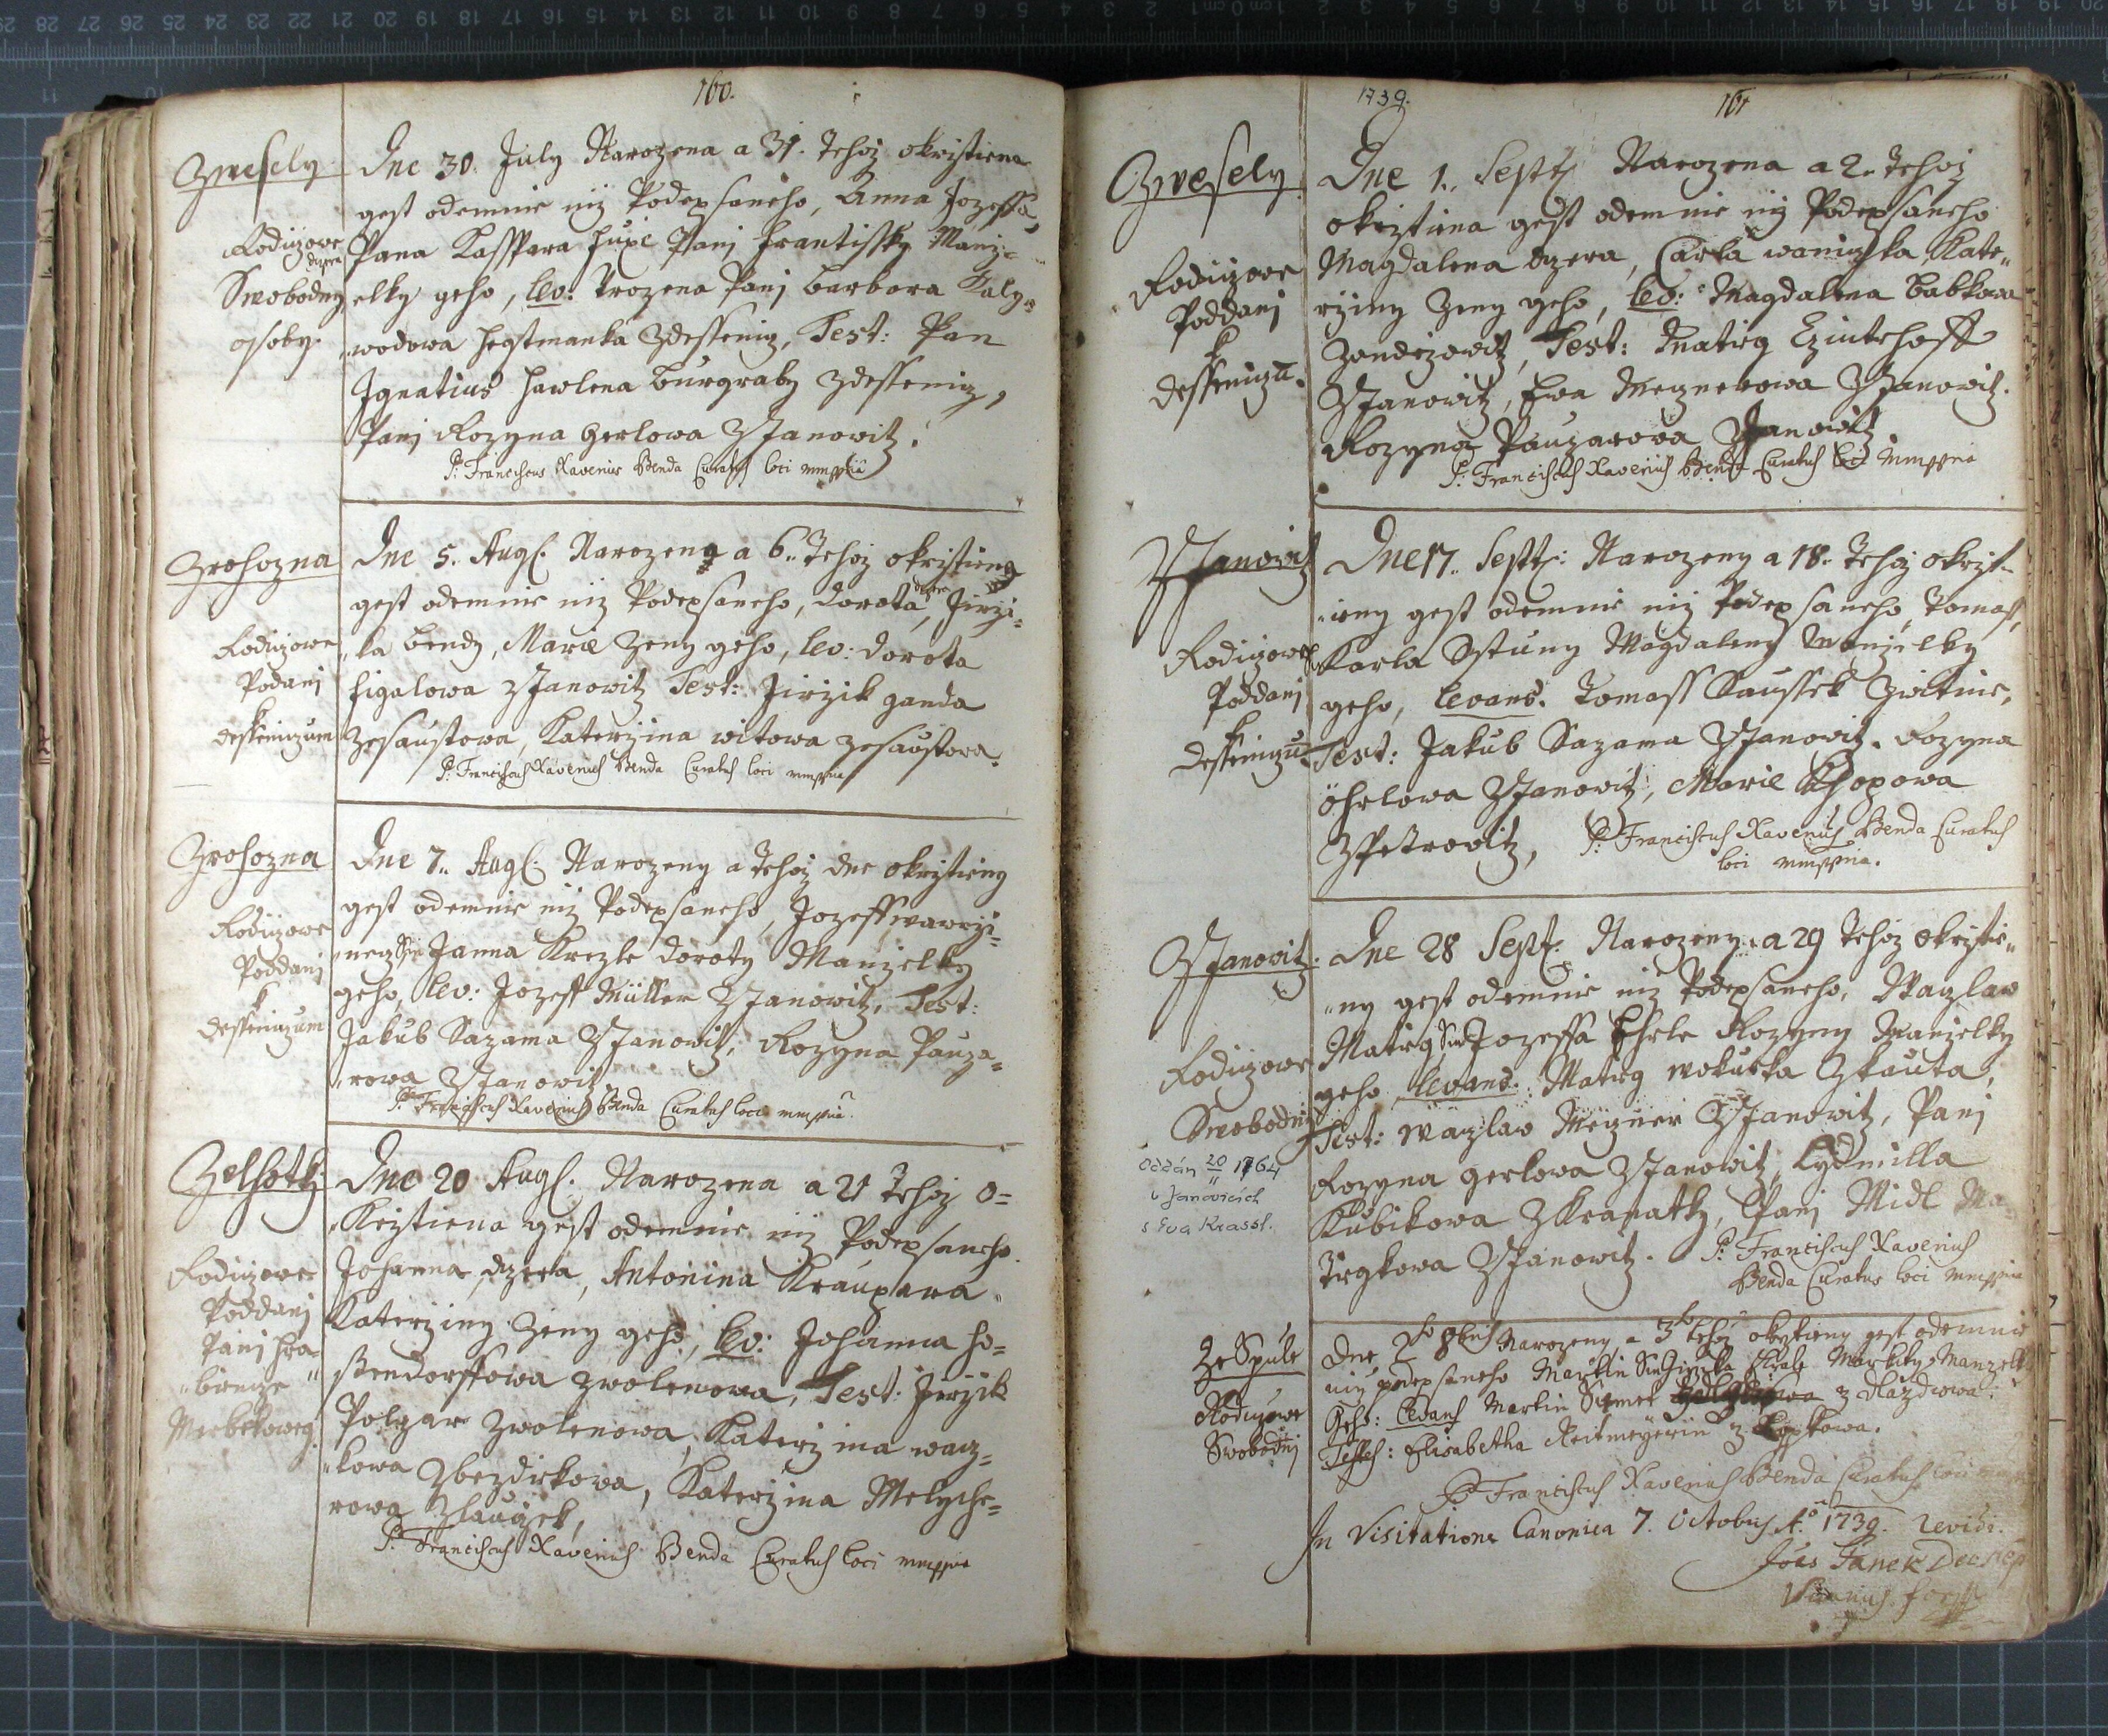 160.
Zwesely
Rodiczowe
Swobodny
osoby.
Dne 30. July Narozena a 31. Tehoz okristiena
gest odemnie niz Podepsaneho, Anna Jozeffa
dcera
Pana Kasspara Pani Frantissky Manz=
elky geho, lev: Trozena Pani Barbora Kaly=
wodowa hegtmanka Zdesseniz, Test: Pan
Ignatius Hawlena Burgraby Zdesseniz,
Pani Rozyna Gerlowa ZJanowitz.
P: Franciscus Xaverius Benda Curatus loci mmppria
Zrohozna
Rodiczowe
Podani
k
Desseniczum
Dne 5. Augs. Narozena a 6. Tehoz okristiena
gest odemnie niz Podepsaneho, Dorota dcera, Jirzi=
ka Bendy, Marie Zeny geho, lev: Dorota
Figalowa ZJanowitz Test: Jirzik Janda
Zesaustowa, Katerzina Witowa Zesaustowa.
P: Franciscus Xaverius Benda Curatus loci mmppria
Zrohozna
Rodiczowe
Poddani
k
Desseniczum
Dne 7. Augs: Narozeny a Tehoz dne okrzticny
gest odemnie niz Podepsaneho, Jozeff Wawrzi=
necz Sin Janna Krczle Doroty Manzelky
geho, lev: Jozeff Müller ZJanowitz, Test:
Jakub Sazama ZJanowitz, Rozyna Pauza=
rowa ZJanowitz
P: Franciscus Xaverius Benda Curatus loci mmppria
Zelhotky
Rodiczowe
Poddani
Pani Hra=
bienze
Dne 20 Augs. Narozena a 21 Tehoz o=
krztiena gest odemnie niz Podepsaneho.
Johanna dcera, Antonina Kraupara
Katerziny Zeny geho, lev: Johanna Ho=
ssendorffowa Zwolenowa, Test: Jirzik
Polzar Zwolenowa, Katerzina Wacz=
kowa Zbezdiekowa, Katerzina Melyche=
rowa Zlauzek,
P: Franciscus Xaverius Benda Curatus loci mmppria
1739.
161
Zwesely
Rodiczowe
Poddani
k
Desseniczu.
Dne 1. Sept: Narozena a 2. Tehoz
okrztiena gest odemnie niz Podepsaneho
Magdalena dcera, Carla Waniczka Kate=
rziny Zeny geho, lev: Magdalena Babkowa
Zondrzowitz, Test: Matieg
ZJanowitz, Ewa Megnerowa ZJanowitz.
Rozyna Pauzarowa ZJanowitz
P: Franciscus Xaverius Benda Curatus loci mmppria
ZJanowitz
Rodiczowe
Poddani
k
Desseniczu.
Dne 17. Sept: Narozeny a 18. Tehoz okrzt=
ieny gest odemnie niz Podepsaneho, Tomass,
Karla Sstuny Magdaleny Manzelky
geho, levans. Tomass Kaussek
Test: Jakub Sazama ZJanowitz. Rozyna
Öhrlowa ZJanowitz, Marie
ZPetrowitz, P: Franciscus Xaverius Benda Curatus
loci mmppria.
ZJanowitz.
Rodiczowe
Swobodni
Oddán 20/11 1764
v Janovicích
s Eva Krassl.
Dne 28 Sept: Narozeny a 29 Tehoz okrztie=
ny gest odemnie niz Podepsaneho, Wazlaw
Matieg Sin Jozeffa Ehrle Rozyny Manzelky
geho, levans: Matieg Wokurka Zkauta,
Test: Wazlaw Megzner ZJanowitz, Pani
Rozyna Gerlowa ZJanowitz, Lydmilla
Kubikowa Zkrapatky, Pani Midl Ma=
ZJanowitz. P: Franciscus Xaverius
Benda Curatus loci mmppria
Ze Spule
Rodiczowe
Swobodni
Dne 2do 8bris Narozeny a 3ho tehoz okrztieny gest odemnie
niz podepsaneho Martin Sin Jirzika Markety Manzelky
Geho: levans Martin z Razdiowa.
Testes: Elisabetha Reitmeyerin z
P: Franciscus Xaverius Benda Curatus loci
In Visitatione Canonica 7. Octobris Ao. 1739. revidi.
Joes Fanek
Vicarius